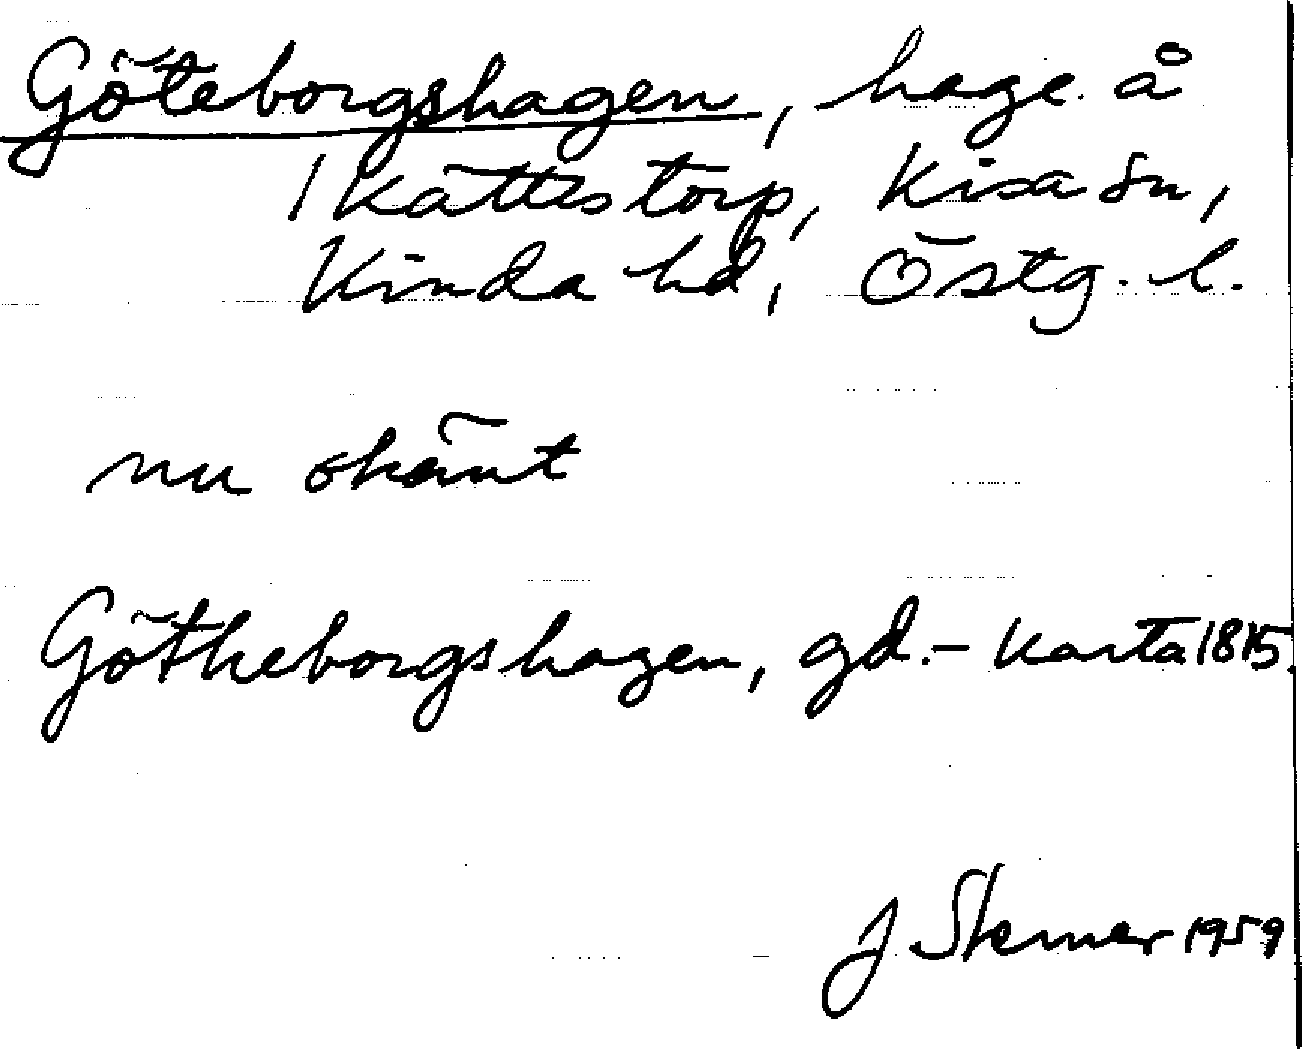 Göteborgshagen, hage å
Kättestorp, Kisa sn,
Kinda hd, Östg. l.
nu okänt
Götheborgshagen, gd.- Karta 1815.
J. Sterner 1959